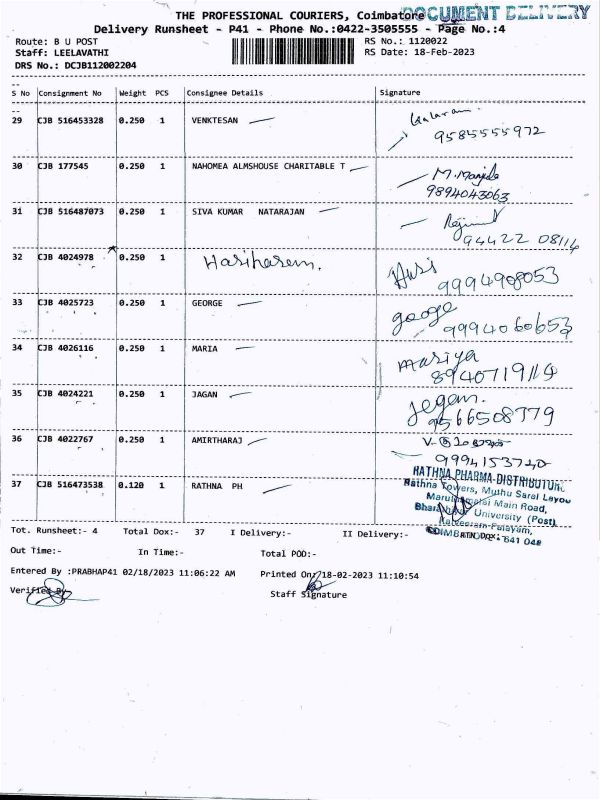 THE PROFESSIONAL COURIERS, Coimbatore DOCUMENT DELIVERY
Delivery Runsheet - P41 - Phone No.:0422-3505555 - Page No.:4
Route: B U POST RS No.: 1120022
Staff: LEELAVATHI RS Date: 18-Feb-2023
DRS No.: DCJB112002204
S No Consignment No Weight PCS Consignee Details Signature
29 CJB 516453328 0.250 1 VENKTESAN
9585555972
30 CJB 177545 0.250 1 NAHOMEA ALMSHOUSE CHARITABLE T
9894043063
31 CJB 516487073 0.250 1 SIVA KUMAR NATARAJAN
94422 08114
32 CJB 4024978 0.250 1 Hariharem. Hari
9994908053
33 CJB 4025723 0.250 1 GEORGE george
9994060653
34 CJB 4026116 0.250 1 MARIA mariya
8940719114
35 CJB 4024221 0.250 1 JAGAN Jegan.
9566508779
36 CJB 4022767 0.250 1 AMIRTHARAJ
9994153740
37 CJB 516473538 0.120 1 RATHNA PH RATHNA PHARMA-DISTRIBUTOR
Rathna Towers, Muthu Saral Layou
Main Road,
University (Post),
641 046
Tot. Runsheet:- 4 Total Dox:- 37 I Delivery:- II Delivery:- RTN Dox:-
Out Time:- In Time:- Total POD:-
Entered By :PRABHAP41 02/18/2023 11:06:22 AM Printed On:18-02-2023 11:10:54
Verified By Staff Signature